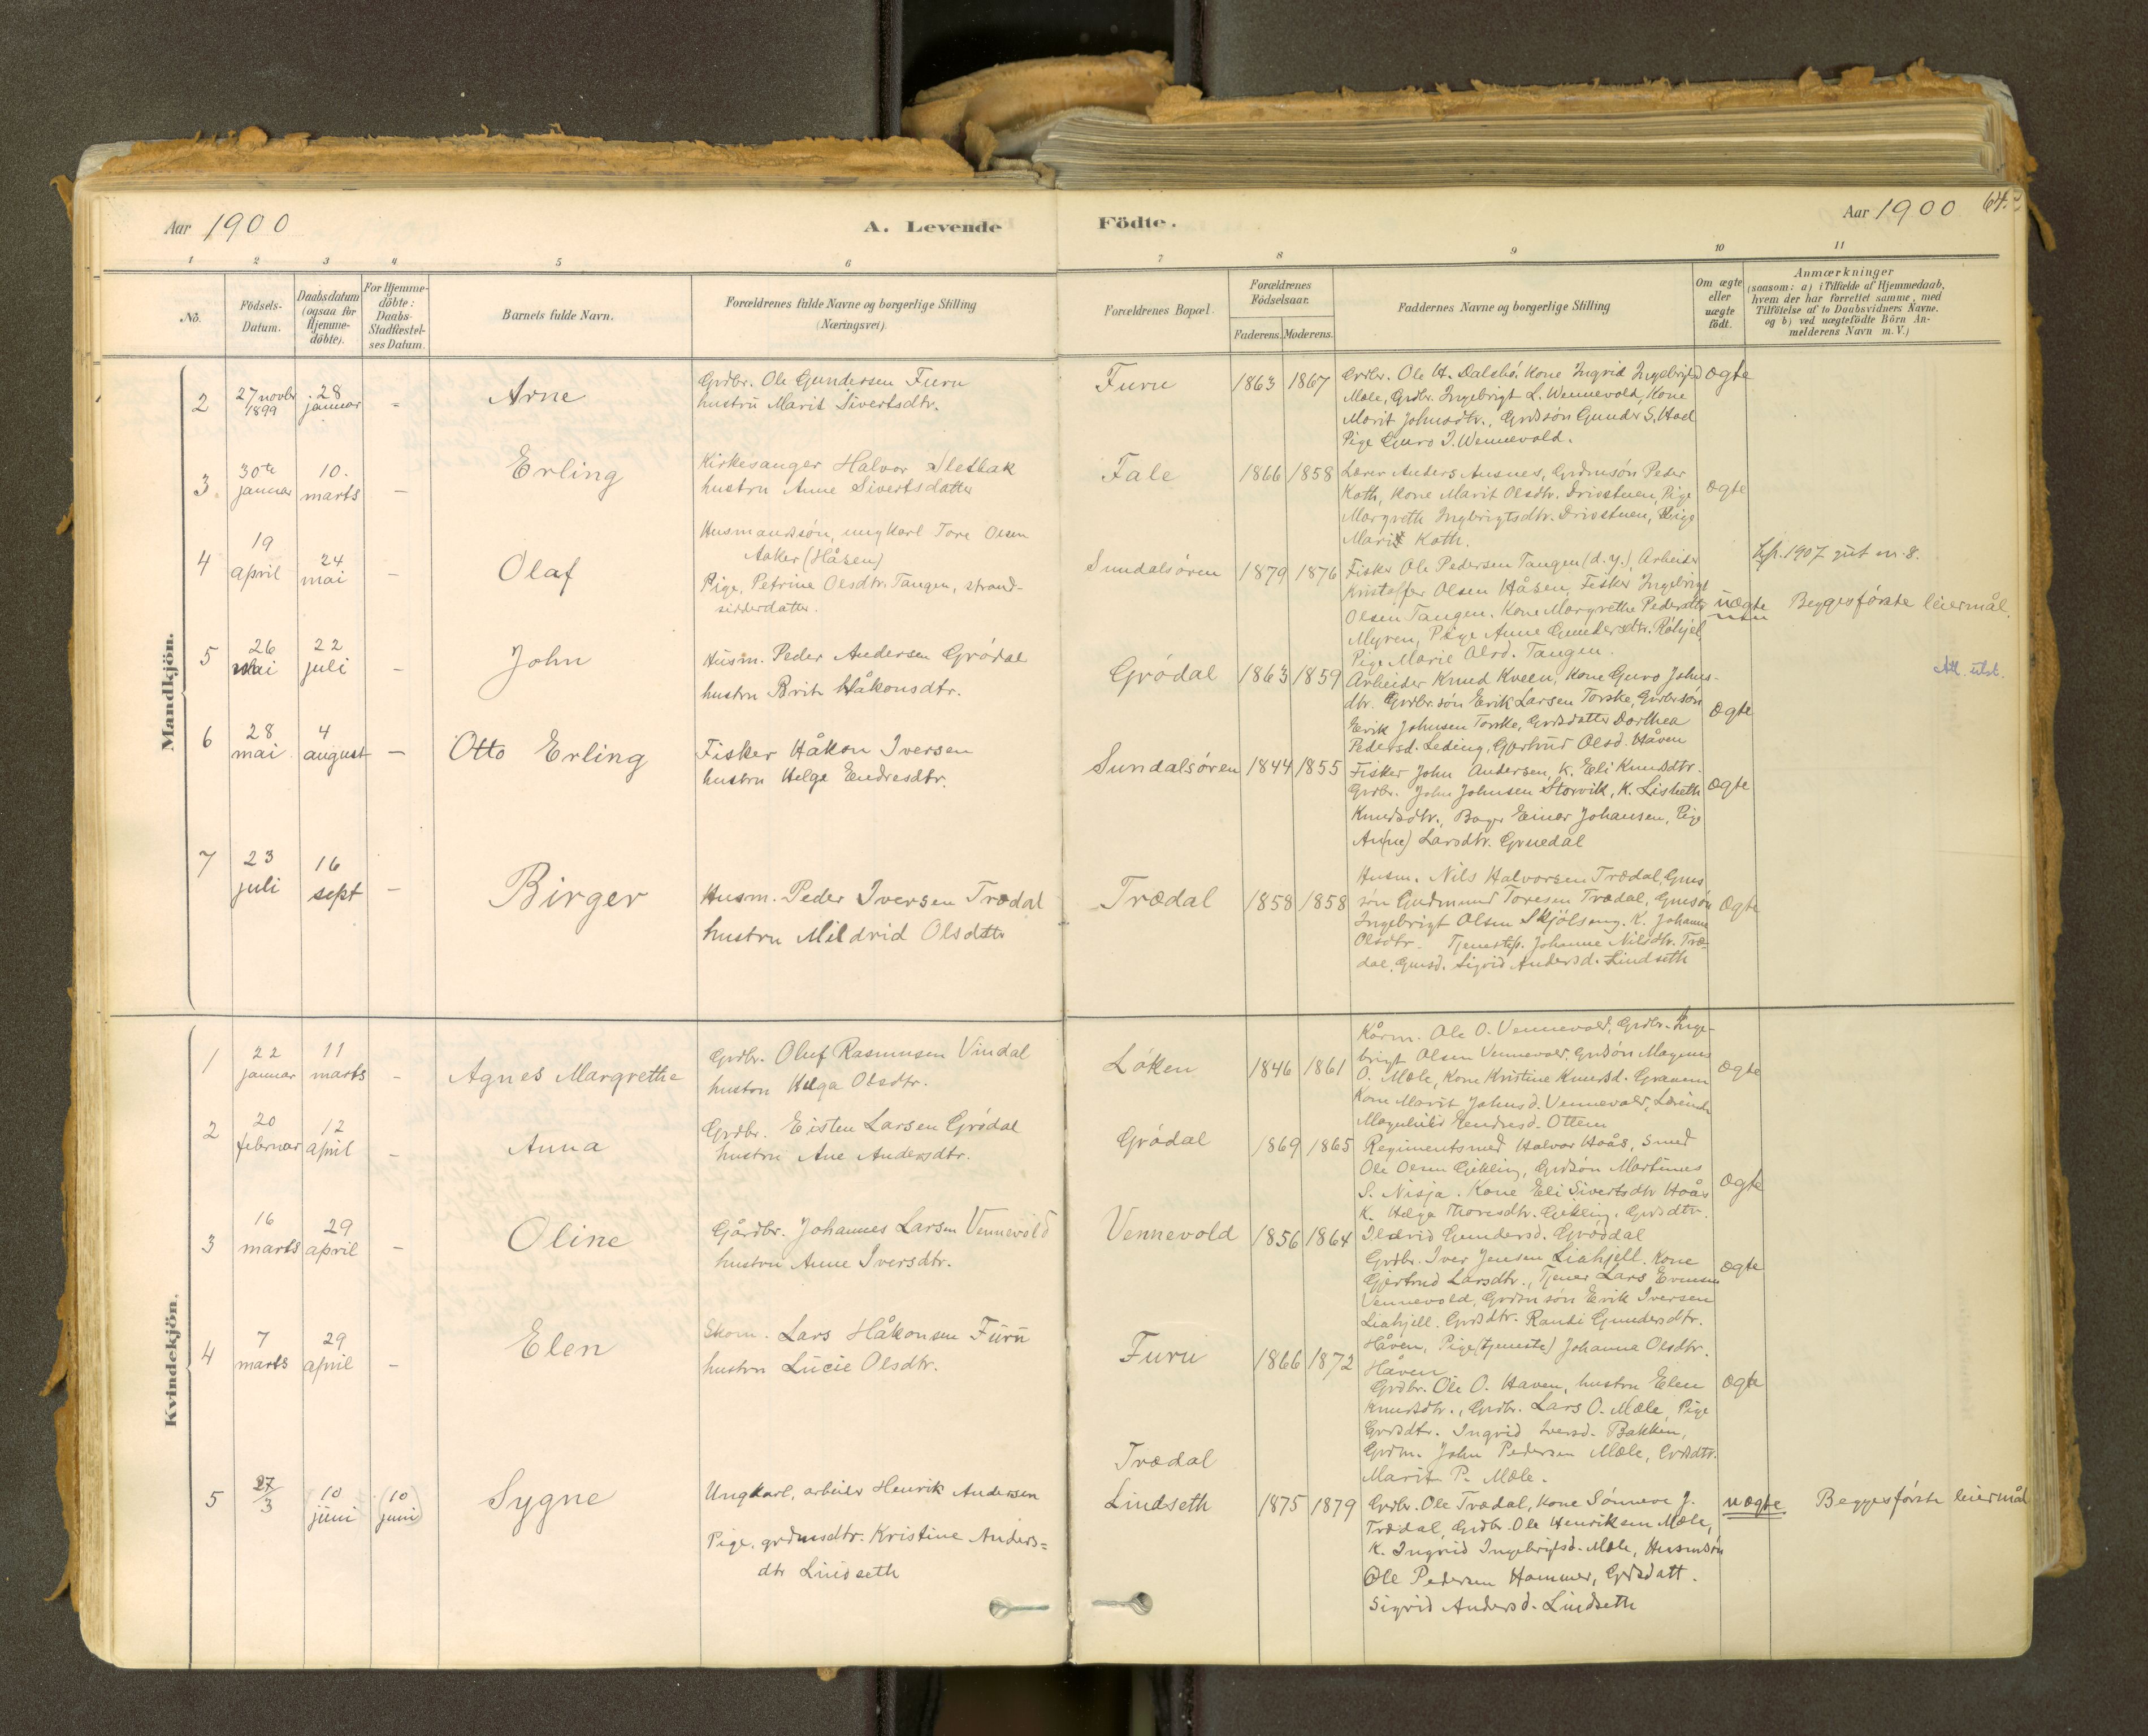 Aar 1900
A. Levende
Födte.
Aar 1900
64.
1 2 3 4 5 6 7 8 9 10 11
No.
Födsels-
Datum.
Daabsdatum
(ogsaa for
Hjemme-
döbte).
For Hjemme-
döbte:
Daabs-
Stadfæstel-
ses Datum.
Barnets fulde Navn.
Forældrenes fulde Navne og borgerlige Stilling
(Næringsvei).
Forældrenes Bopæl.
Forældrenes
Födselsaar.
Faderens. Moderens.
Faddernes Navne og borgerlige Stilling
Om ægte
eller
uægte
födt.
Anmærkninger
(saasom: a) i Tilfælde af Hjemmedaab,
hvem der har forrettet samme, med
Tilföielse af to Daabsvidners Navne.
og b) ved uægtefödte Börn An-
melderens Navn m. V.)
Mandkjön.
2
27 novbr
1899
28
januar
-
Arne
Grdbr. Ole Gundersen Furu
hustru Marit Sivertsdtr.
Furu
1863 1867
Grdbr. Ole H. Dalsbö kone Ingrid Ingebrigtsd
Mæle, Grdbr. Ingebrigt L. Wennevold, Kone
Marit Johnsdtr., Grdsön Gunder S. Hoel
Pige Guro I. Wennevold.
ægte
3.
30te
januar
10.
marts
-
Erling
Kirkesanger Halvor Sletbak
hustru Anne Sivertsdatter
Fale
1866 1858
Lærer Anders Ausnes, Grdmsön Peder
Koth, Kone Marit Olsdtr. Driestuen, Pige
Margreth Ingbrigtsdtr. Driestuen, Pige
Marit Koth.
ægte
4
19
april
24
mai
-
Olaf
Husmandssön, ungkarl Tore Olsen
Aaker (Håsen)
Pige, Petrine Olsdtr. Tangen, strand-
sidderdatter.
Sundalsören
1879 1876
Fisker Ole Pedersen Tangen (d.y.), Arbeider
Kristoffer Olsen Håsen, Fisker Ingebrigt
Olsen Tangen. Kone Margrethe Pedersdtr
Myren, Pige Anne Gundersdtr.
Pige Marie Olsd. Tangen.
uægte
1907 gut n. 8.
Begges förste leiermål.
5
26
mai
22
juli
-
John
Husm. Peder Andersen Grödal
hustru Brit Håkonsdtr.
Grödal
1863 1859
Arbeider Knud Kveen, Kone Guro Johns-
dtr. Grdbr.sön Erik Larsen Torske, Grdbrsön
Erik Johnsen Torske, Grdsdatter Dorthea
Pedersd. Leding, Gjertrud Olsd. Håven
ægte
Att. utst.
6
28
mai
4
august
-
Otto Erling
Fisker Håkon Iversen
hustru Helge Endresdtr.
Sundalsören
1844 1855
Fisker John Andersen, K. Eli Knudsdtr.
Grdbr. John Johnsen Storvik, K. Lisbeth
Knudsdtr., Bager Einar Johansen, Pige
An(ne) Larsdtr. Gruedal
ægte
7
23
juli
16
sept
-
Birger
Husm. Peder Iversen Trædal
hustru Mildrid Olsdttr
Trædal
1858 1858
Husm. Nils Halvorsen Trædal, Gms
sön Gudmund Toresen Trædal, Gmsön
Ingebrigt Olsen Skjölseng. K. Johanne
Olsdtr. Tjenestep. Johanne Nilsdtr. Træ-
dal, Gmsd. Sigrid Andersd. Lindseth
ægte
Kvindekjön.
1
22
januar
11
marts
-
Agnes Margrethe
Grdbr. Oluf Rasmusen Vindal
hustru Helga Olsdtr.
Löken
1846 1861
Kårm. Ole O. Vennevold, Grdbr. Inge-
brigt Olsen Vennevold, Grdsön Magnus
O. Mæle, Kone Kristine Knudsd. Gravem
Kone Marit Johnsd. Vennevold, Lærerinde
Magnhild Endresd. Ottem
ægte
2
20
februar
12
april
-
Anna
Grdbr. Eisten Larsen Grödal
hustru Ane Andersdtr.
Grödal
1869 1865
Regimentsmed Halvor Hoås, Smed
Ole Olsen Gikling, Grdsön Martinus
S. Nisja. Kone Eli Sivertsdtr Hoås
K. Helga Thoresdtr. Gikling, Grdsdtr.
Ildrid Gundersd. Gröddal
ægte
3
16
marts
29
april
-
Oline
Gårdbr. Johannes Larsen Vennevold
hustru Anne Iversdtr.
Vennevold
1856 1864
Grdbr. Iver Jensen Liahjell. Kone
Gjertrud Larsdtr., Tjener Lars Evensen
Vennevold, Grdmsön Erik Iversen
Liahjell. Grdsdtr. Randi Gundersdtr.
Håven, Pige (tjeneste) Johanna Olsdtr.
Håven
ægte
4
7
marts
29
april
-
Elen
Skom. Lars Håkonsen Furu
hustru Lucie Olsdtr.
Furu
1866 1872
Grdbr. Ole O. Haven, hustru Elen
Knudsdtr., Grdbr. Lars O. Mæle, Pige
Grdsdtr. Ingrid Iversd. Bakken,
Grdm. John Pedersen Mæle, Grdsdtr.
Marit P. Mæle.
ægte
5
27/3
10
juni
(10
juni)
Sygne
Ungkarl, arbeider Henrik Andersen
Pige, grdmsdtr. Kristine Anders=
dtr Lindseth
Trædal
Lindseth
1875 1879
Grdbr. Ole Trædal, Kone Sönneve J.
Trædal, Grdbr. Ole Henriksen Mæle,
K. Ingrid Ingebrigtsd. Mæle, Husmsön
Ole Pedersen Hammer, Grdsdatt.
Sigrid Andersd. Lindseth
uægte
Begges förste leiermål